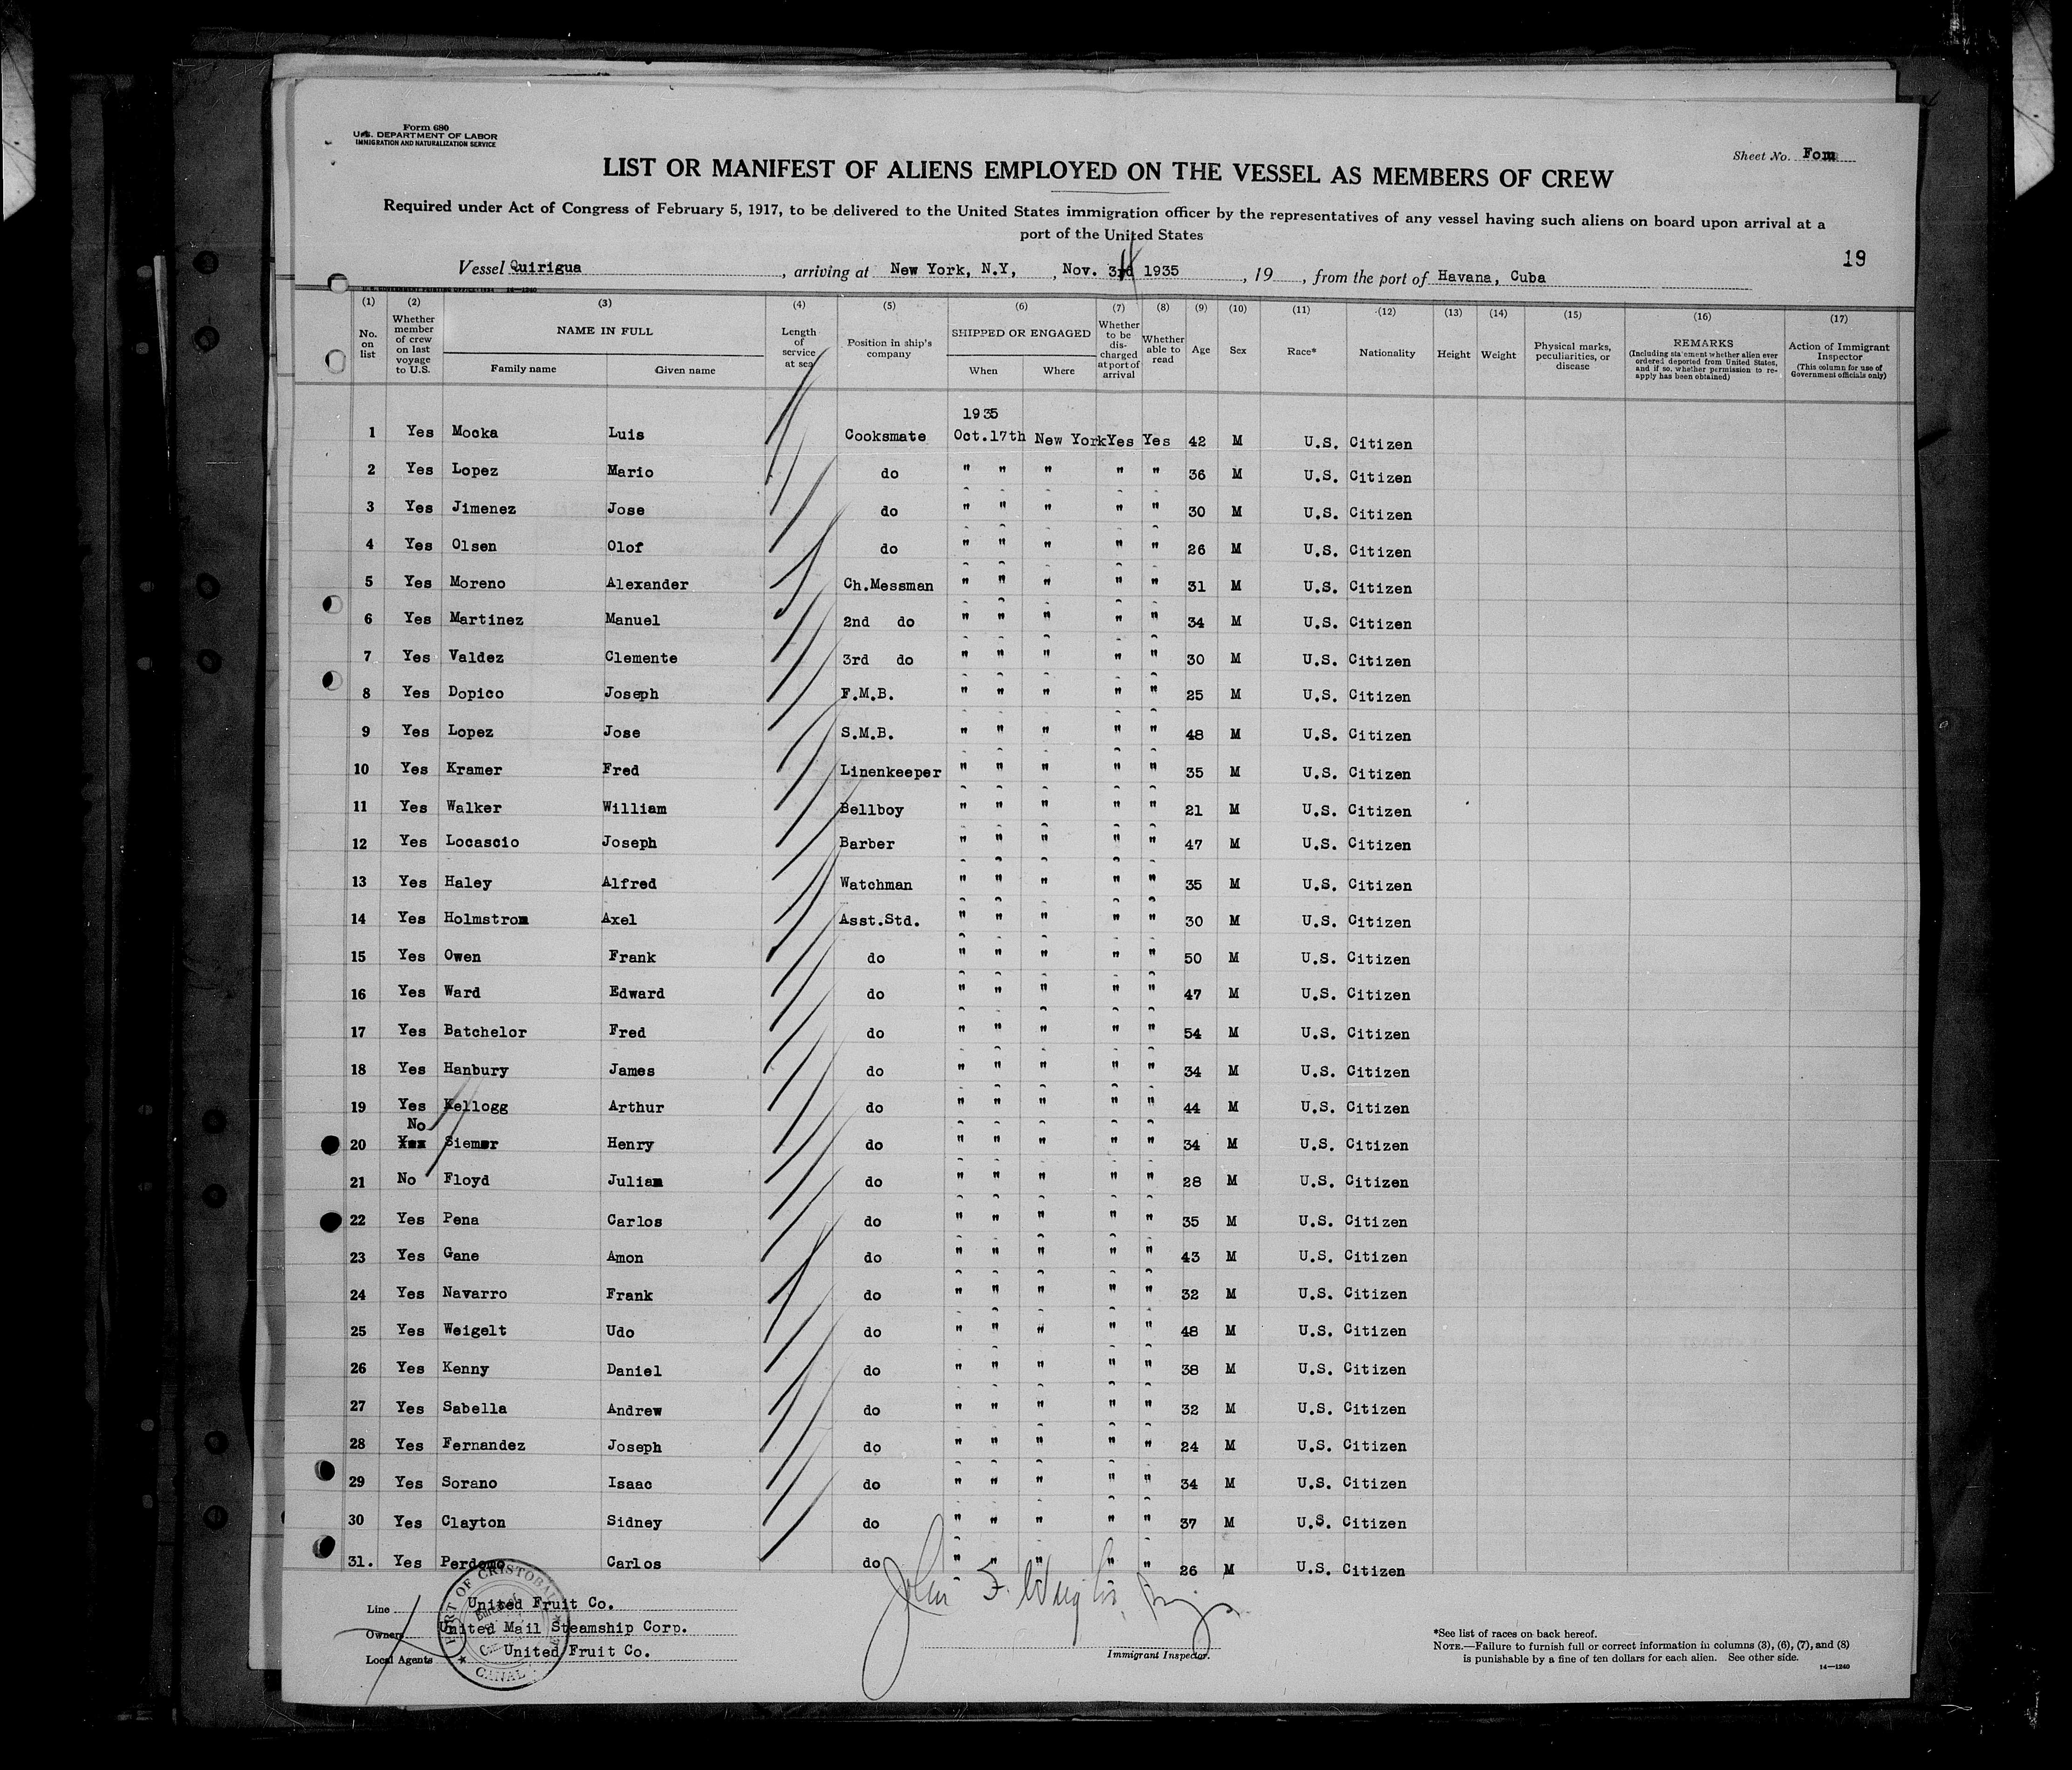 Form 680
U.S. DEPARTMENT OF LABOR
IMMIGRATION AND NATURALIZATION SERVICE
Sheet No.
LIST OR MANIFEST OF ALIENS EMPLOYED ON THE VESSEL AS MEMBERS OF CREW
Required under Act of Congress of February 5, 1917, to be delivered to the United States immigration officer by the representatives of any vessel having such aliens on board upon arrival at a
port of the United States
19
Vessel Quirigua, arriving at New York, N.Y, , Nov. 3rd 1935, 19 , from the port of Havana, Cuba
(1) (2) (3) (4) (5) (6) (7) (8) (9) (10) (11) (12) (13) (14) (15) (16) (17)
No. on list Whether member of crew on last voyage to U.S. NAME IN FULL Family name Given name Length of service at sea Position in ship's company SHIPPED OR ENGAGED When Where Whether to be discharged at port of arrival Whether able to read Age Sex Race* Nationality Height Weight Physical marks, peculiarities, or disease REMARKS (Including statement whether alien ever ordered deported from United States, and if so, whether permission to re-apply has been obtained) Action of Immigrant Inspector (This column for use of Government officials only)
1935
1 Yes Mocka Luis Cooksmate Oct.17th New York Yes Yes 42 M U.S. Citizen
2 Yes Lopez Mario do " " " " " 36 M U.S. Citizen
3 Yes Jimenez Jose do " " " " " 30 M U.S. Citizen
4 Yes Olsen Olof do " " " " " 26 M U.S. Citizen
5 Yes Moreno Alexander Ch.Messman " " " " " 31 M U.S. Citizen
6 Yes Martinez Manuel 2nd do " " " " " 34 M U.S. Citizen
7 Yes Valdez Clemente 3rd do " " " " " 30 M U.S. Citizen
8 Yes Dopico Joseph F.M.B. " " " " " 25 M U.S. Citizen
9 Yes Lopez Jose S.M.B. " " " " " 48 M U.S. Citizen
10 Yes Kramer Fred Linenkeeper " " " " " 35 M U.S. Citizen
11 Yes Walker William Bellboy " " " " " 21 M U.S. Citizen
12 Yes Locascio Joseph Barber " " " " " 47 M U.S. Citizen
13 Yes Haley Alfred Watchman " " " " " 35 M U.S. Citizen
14 Yes Holmstrom Axel Asst.Std. " " " " " 30 M U.S. Citizen
15 Yes Owen Frank do " " " " " 50 M U.S. Citizen
16 Yes Ward Edward do " " " " " 47 M U.S. Citizen
17 Yes Batchelor Fred do " " " " " 54 M U.S. Citizen
18 Yes Hanbury James do " " " " " 34 M U.S. Citizen
19 Yes Kellogg Arthur do " " " " " 44 M U.S. Citizen
No
20 Yes Siemer Henry do " " " " " 34 M U.S. Citizen
21 No Floyd Julian do " " " " " 28 M U.S. Citizen
22 Yes Pena Carlos do " " " " " 35 M U.S. Citizen
23 Yes Gane Amon do " " " " " 43 M U.S. Citizen
24 Yes Navarro Frank do " " " " " 32 M U.S. Citizen
25 Yes Weigelt Udo do " " " " " 48 M U.S. Citizen
26 Yes Kenny Daniel do " " " " " 38 M U.S. Citizen
27 Yes Sabella Andrew do " " " " " 32 M U.S. Citizen
28 Yes Fernandez Joseph do " " " " " 24 M U.S. Citizen
29 Yes Sorano Isaac do " " " " " 34 M U.S. Citizen
30 Yes Clayton Sidney do " " " " " 37 M U.S. Citizen
31. Yes Perdomo Carlos do " " " " " 26 M U.S. Citizen
Line United Fruit Co.
Owners United Mail Steamship Corp.
Local Agents United Fruit Co.
PORT OF CRISTOBAL
CANAL
John F.
Immigrant Inspector.
*See list of races on back hereof.
NOTE.—Failure to furnish full or correct information in columns (3), (6), (7), and (8)
is punishable by a fine of ten dollars for each alien. See other side.
14—1240